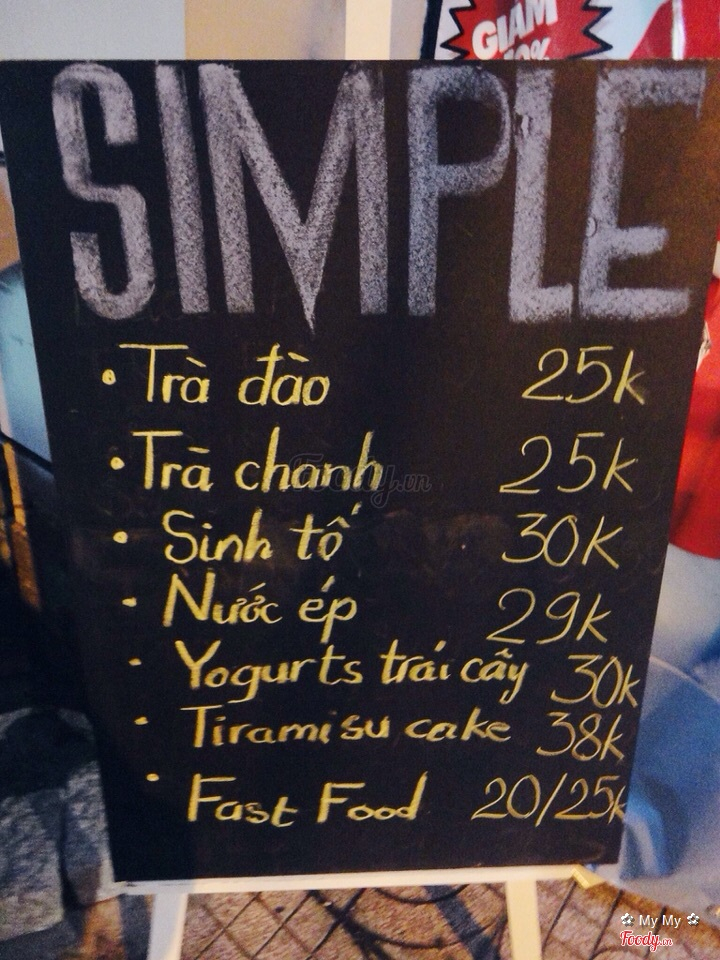 GIẢM
10%
SIMPLE
• Trà đào 25k
• Trà chanh 25k
Foody.vn
• Sinh tố 30K
• Nước ép 29k
• Yogurts trái cây 30k
• Tiramisu cake 38k
• Fast Food 20/25k
✿ My My ✿
Foody.vn